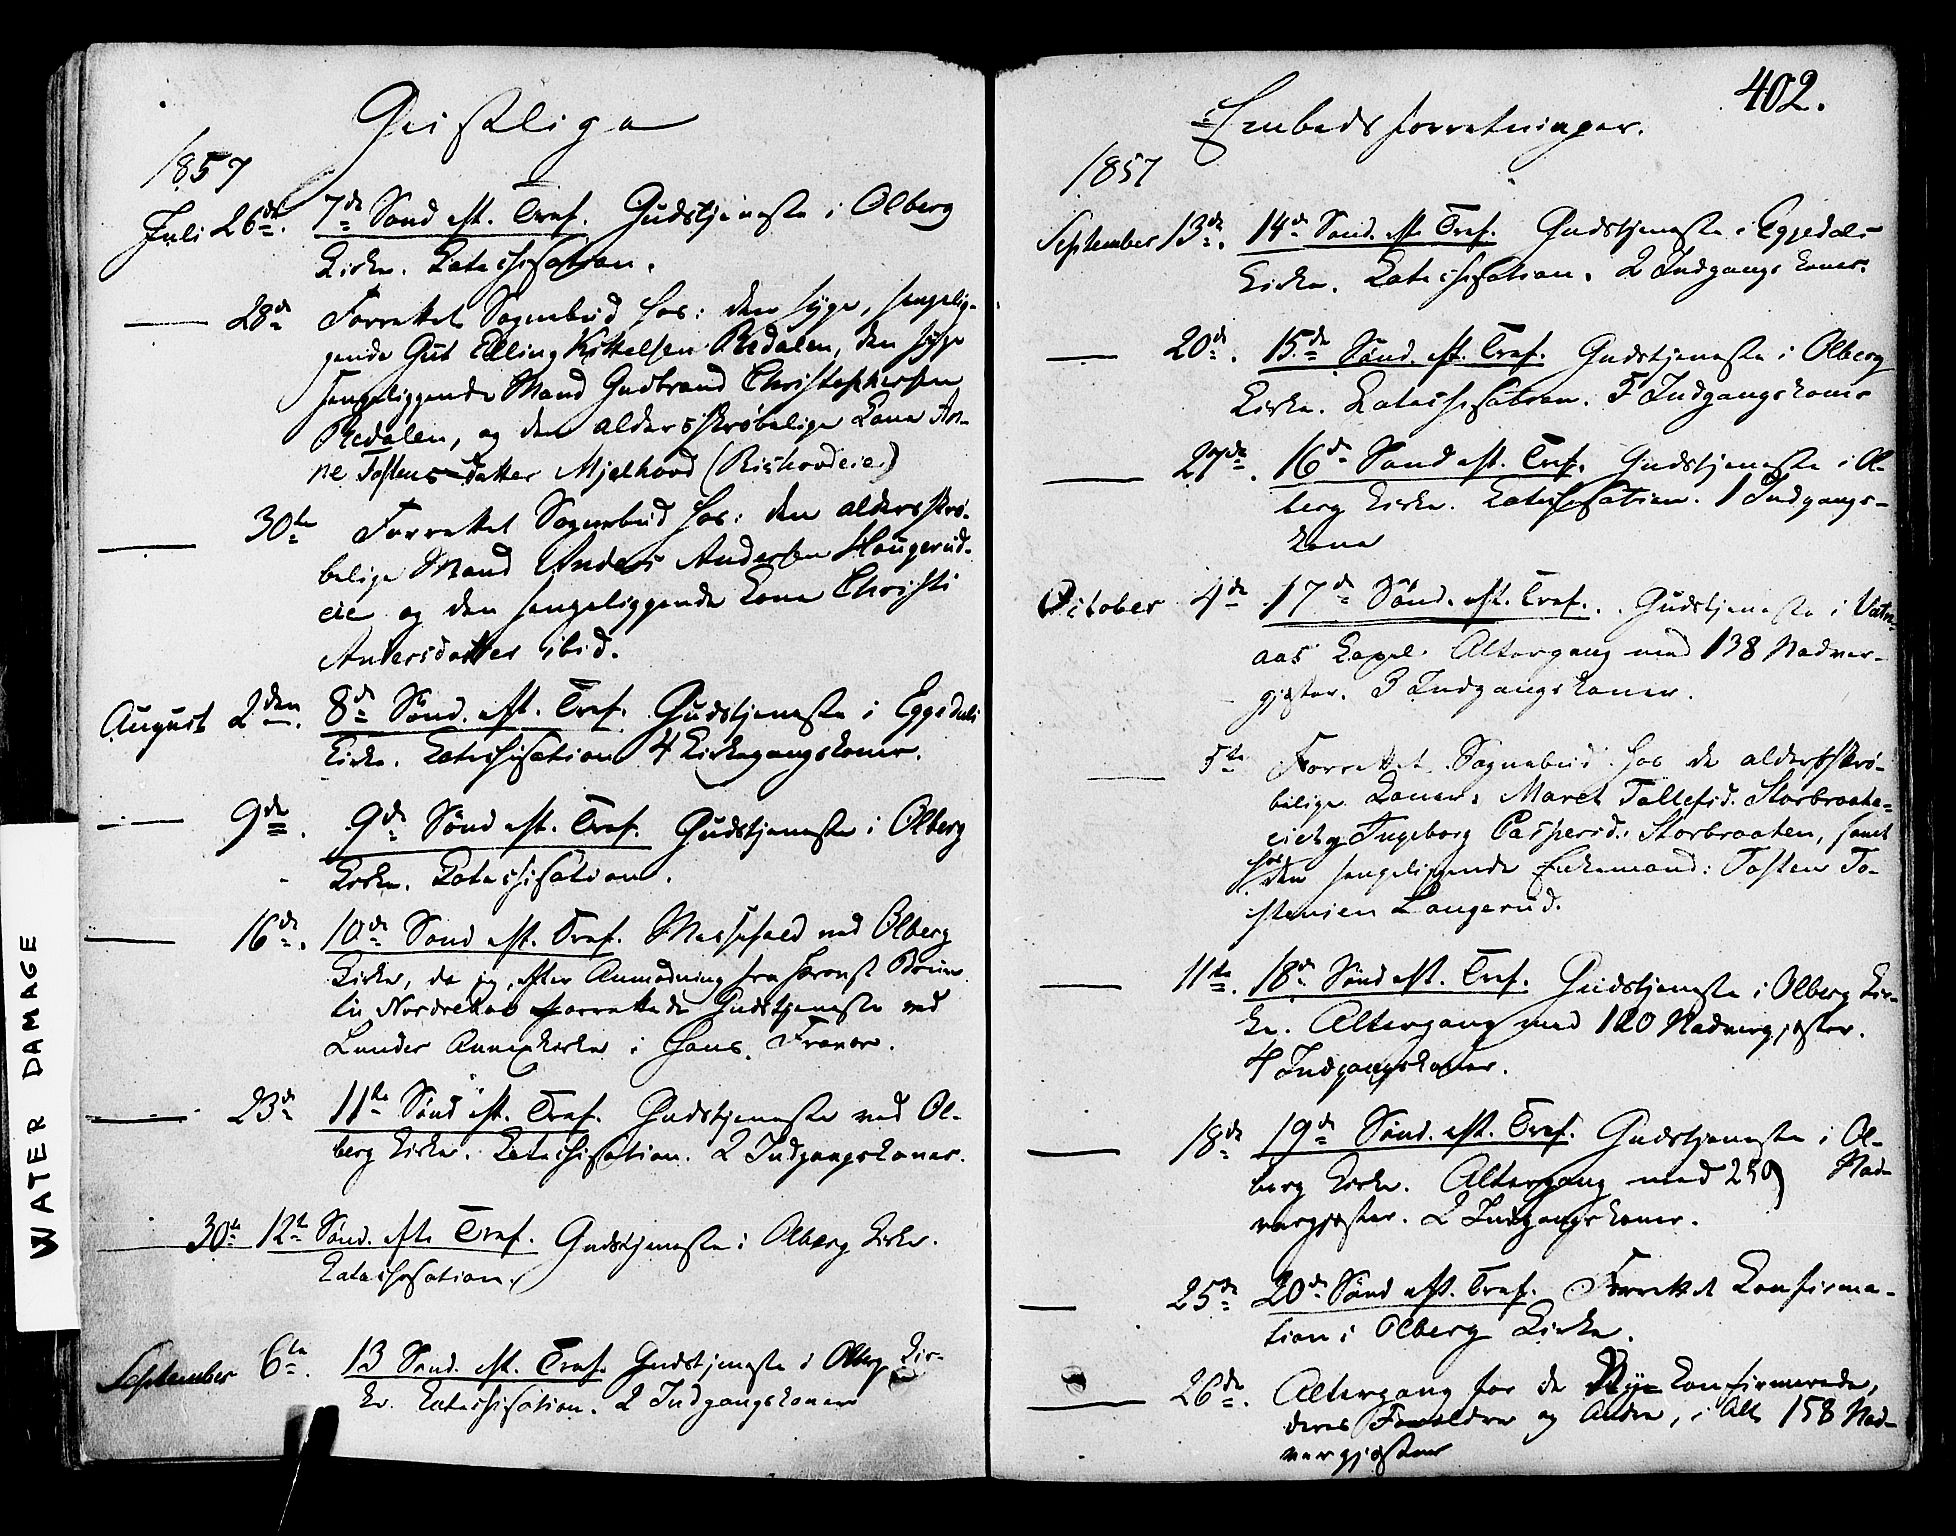 Geistlige
1857
Juli 26de. 7de Sønd eft. Tref. Gudstjeneste i Olberg
Kirke. Katechisation.
28de Forrettet Sognebud hos: den syge, sengelig-
gende Gut Elling Kittelsen Redalen, den syge
sengeliggende Mand Gudbrand Christophersen
Redalen, og den aldersskrøbelige Kone An-
ne Tostensdatter Mjelhovd (Rishovdeie)
30te Forrettet Sognebud hos: den alderskrø-
belige Mand Anders Andersen Haugerud-
eie og den sengeliggende Kone Christi
Andersdatter ibid.
August 2den. 8de Sønd. eft. Tref. Gudstjeneste i Eggedals
Kirke. Katechisation 4 Kirkegangskoner.
9de. 9de Sønd eft. Tref. Gudstjeneste i Olberg
Kirke. Katechisation.
16de. 10de Sønd eft. Tref. Messefald ved Olberg
Kirke, da jeg, efter Anmodning fra Provst
til Norderhov forrettede Gudstjeneste ved
Lunder Annexkirke i hans Fravær.
23de 11te Sønd eft. Tref. Gudstjeneste ved Ol-
berg Kirke. Katechisation. 2 Indgangskoner.
30te 12te Sønd. eft. Tref. Gudstjeneste i Olberg Kirke.
Katechisation.
September 6te. 13 Sønd. eft. Tref. Gudstjeneste i Olberg Kir-
ke. Katechisation. 2 Indgangskoner
402.
Embedsforretninger.
1857
September 13de. 14de Sønd. eft. Tref. Gudstjeneste i Eggedals
Kirke. Katechisation. 2 Indgangskoner.
20de. 15de Sønd. eft. Tref. Gudstjeneste i Olberg
Kirke. Katechisation. 5 Indgangskoner
27de. 16de Sønd eft. Tref. Gudstjeneste i Ol-
berg Kirke. Katechisation. 1 Indgangs-
kone
October 4de 17de Sønd. eft. Tref. Gudstjeneste i Vatn-
aas Kapel. Altergang med 138 Nadver-
gjester. 3 Indgangskoner.
5te Forrettet Sognebud hos de alderskrø-
belige Koner: Maret Tollefsd. Storbraate-
eie og Ingeborg Caspersd. Storbraaten, samt
hos
den sengeliggende Enkemand: Tosten To-
stensen Langerud.
11te. 18de Sønd eft. Tref. Gudstjeneste i Olberg Kir-
ke. Altergang med 120 Nadvergjester.
4 Indgangskoner.
18de 19de Sønd. eft. Tref. Gudstjeneste i Ol-
berg Kirke. Altergang med 259 Nad-
vergjester. 2 Indgangskoner.
25de 20de Sønd eft. Tref. Forrettet Konfirma-
tion i Olberg Kirke.
26de. Altergang for de Ny-konfirmerede,
deres Forældre og Andre, i Alt 158 Nad-
vergjester
WATER DAMAGE